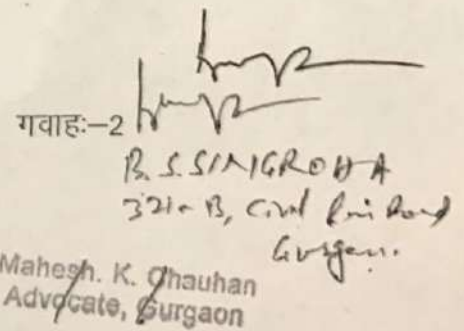 गवाहः–2
B. S. SINGROHA
321-B, Civil Line Road
Gurgaon.
Mahesh. K. Chauhan
Advocate, Gurgaon